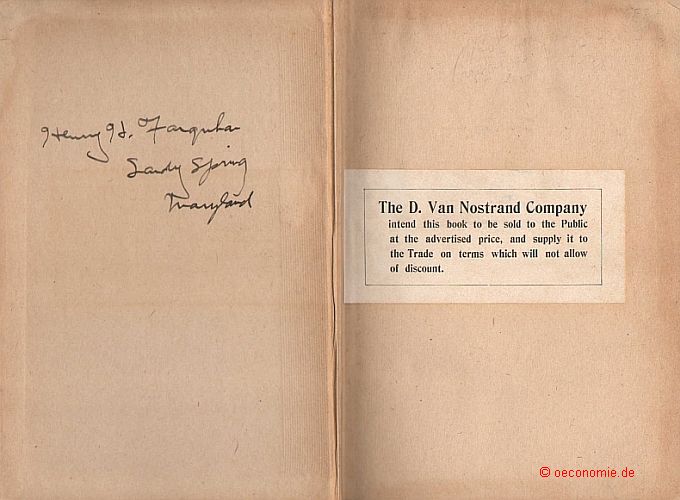 Henry H. Farquhar
Sandy Spring
Maryland
The D. Van Nostrand Company
intend this book to be sold to the Public
at the advertised price, and supply it to
the Trade on terms which will not allow
of discount.
© oeconomie.de